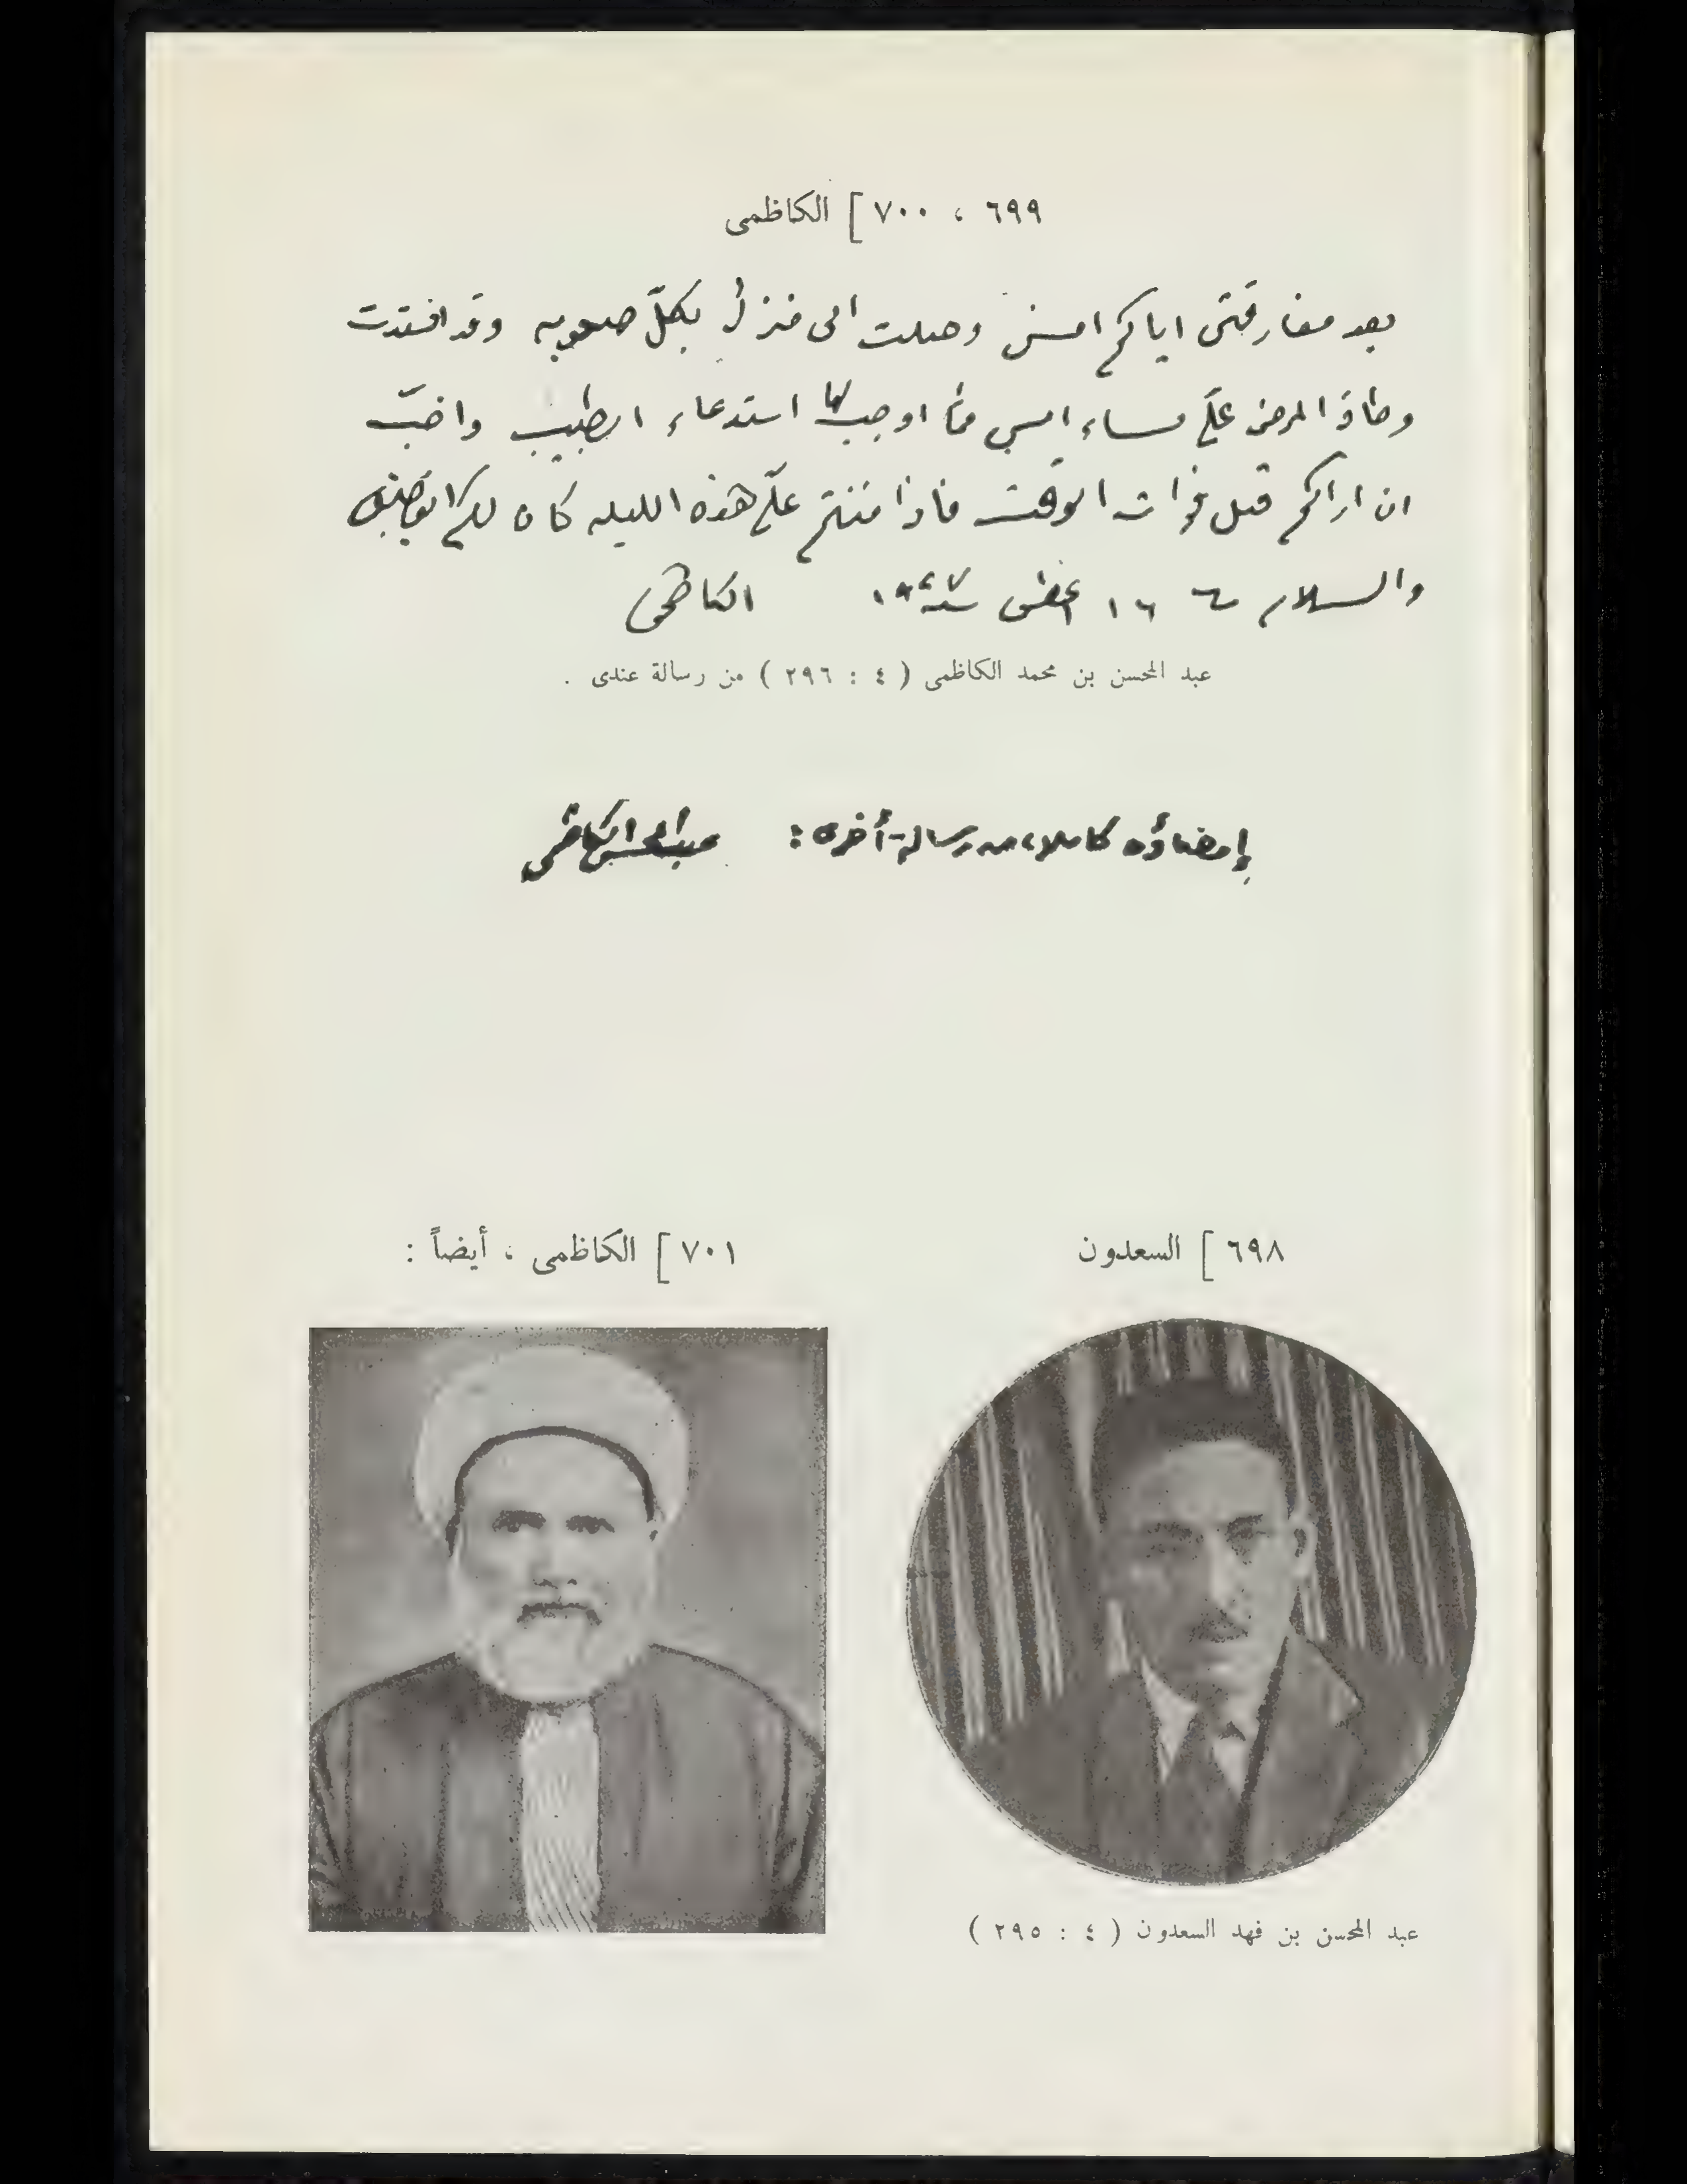 ٦٩٩ ، ٧٠٠ ] الكاظمى
بعد مفارقتى اياكم امس وصلت الى منزلى بكلّ صعوبه وقد اشتدت
وطأة المرض علىّ مساء امس مما اوجب استدعاء الطبيب واحبّ
ان اراكم قبل فوات الوقت فاذا مننتم علىّ هذه الليله كان لكم الفضل
والسلام ١٦ اغطس سنة الكاظمى
عبد المحسن بن محمد الكاظمى ( ٤ : ٢٩٦ ) من رسالة عندى .
إمضاؤه كاملا، من رسالة أخرى : عبد المحسن الكاظمى
٦٩٨ ] السعدون
٧٠١ ] الكاظمى ، أيضاً :
عبد المحسن بن فهد السعدون ( ٤ : ٢٩٥ )